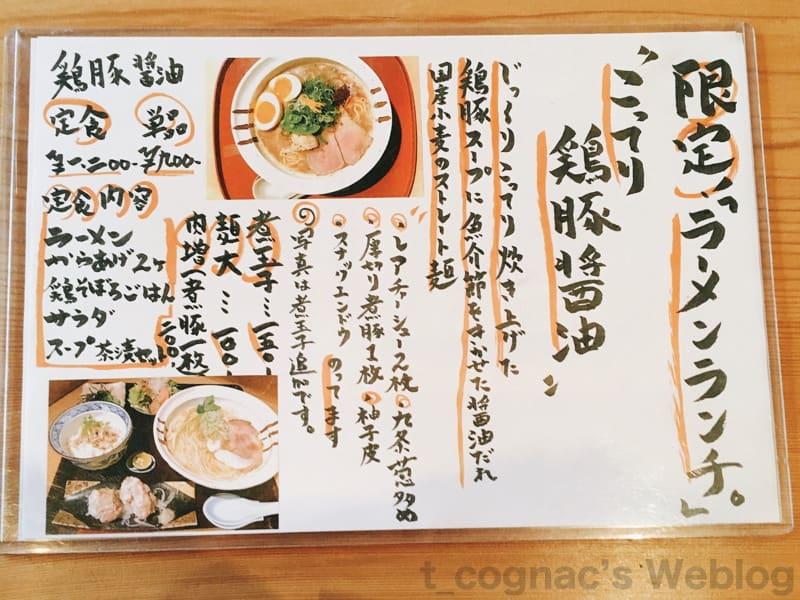 限定「ラーメンランチ。」
"こってり
鶏豚醤油"
じっくりこってり炊き上げた
鶏豚スープに魚介節をきかせた醤油だれ
国産小麦のストレート麺
レアチャーシュー2枚 九条葱多め
厚切り煮豚1枚 柚子皮
スナップエンドウ のってます
の写真は煮玉子追加です。
煮玉子…一五〇
麺大…一〇〇
肉増(煮豚一枚 二〇〇
鶏豚醤油
定食 単品
定食内容
ラーメン
からあげ2ヶ
鶏そぼろごはん
サラダ
スープ茶漬セット
t_cognac's Weblog